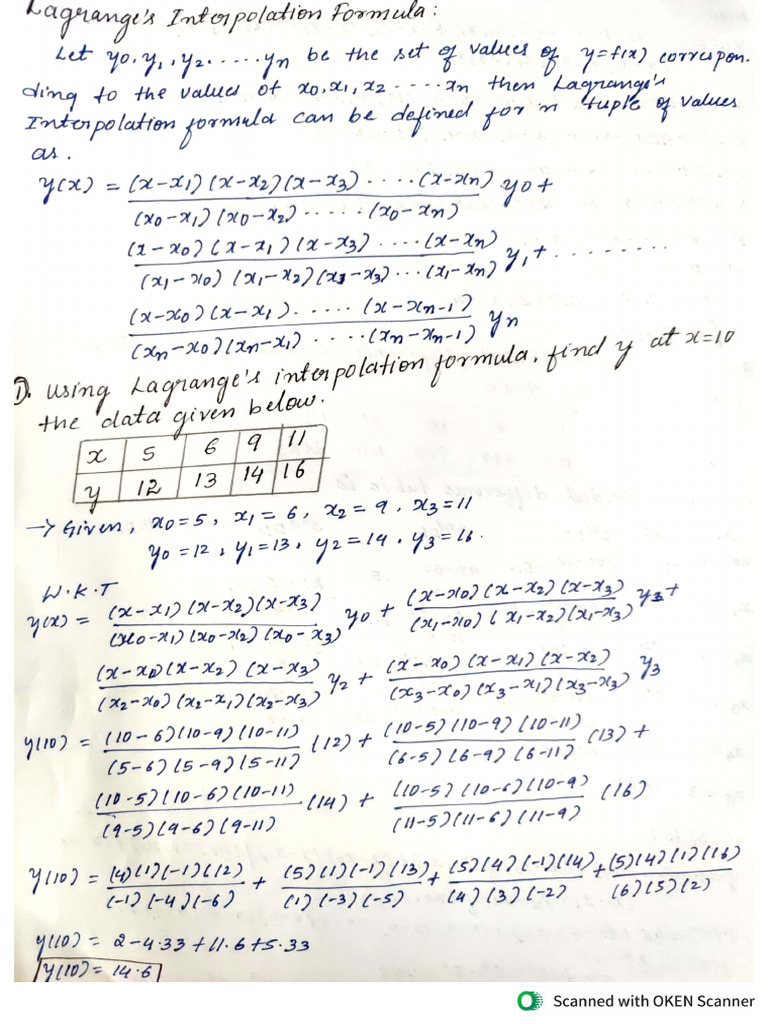 Lagrange's Interpolation Formula:
Let y0, y1, y2 ..... yn be the set of values of y=f(x) correspon.
ding to the values of x0, x1, x2 ..... xn then Lagrange's
Interpolation formula can be defined for n tuple of values
as.
y(x) = (x-x1)(x-x2)(x-x3) .... (x-xn) y0 +
(x0-x1)(x0-x2) ..... (x0-xn)
(x-x0)(x-x1)(x-x3) .... (x-xn) y1 + ........
(x1-x0)(x1-x2)(x1-x3) ... (x1-xn)
(x-x0)(x-x1) ...... (x-xn-1) yn
(xn-x0)(xn-x1) ..... (xn-xn-1)
1). Using Lagrange's interpolation formula, find y at x=10
the data given below.
x 5 6 9 11
y 12 13 14 16
→ Given, x0=5, x1=6, x2=9, x3=11
y0=12, y1=13, y2=14, y3=16.
W.K.T
y(x) = (x-x1)(x-x2)(x-x3) y0 + (x-x0)(x-x2)(x-x3) +
(x0-x1)(x0-x2)(x0-x3) (x1-x0)(x1-x2)(x1-x3)
(x-x0)(x-x2)(x-x3) y2 + (x-x0)(x-x1)(x-x2) y3
(x2-x0)(x2-x1)(x2-x3) (x3-x0)(x3-x1)(x3-x3)
y(10) = (10-6)(10-9)(10-11) (12) + (10-5)(10-9)(10-11) (13) +
(5-6)(5-9)(5-11) (6-5)(6-9)(6-11)
(10-5)(10-6)(10-11) (14) + (10-5)(10-6)(10-9) (16)
(9-5)(9-6)(9-11) (11-5)(11-6)(11-9)
y(10) = (4)(1)(-1)(12) + (5)(1)(-1)(13) + (5)(4)(-1)(14) + (5)(4)(1)(16)
(-1)(-4)(-6) (1)(-3)(-5) (4)(3)(-2) (6)(5)(2)
y(10) = 2-4.33+11.6+5.33
y(10) = 14.6
Scanned with OKEN Scanner